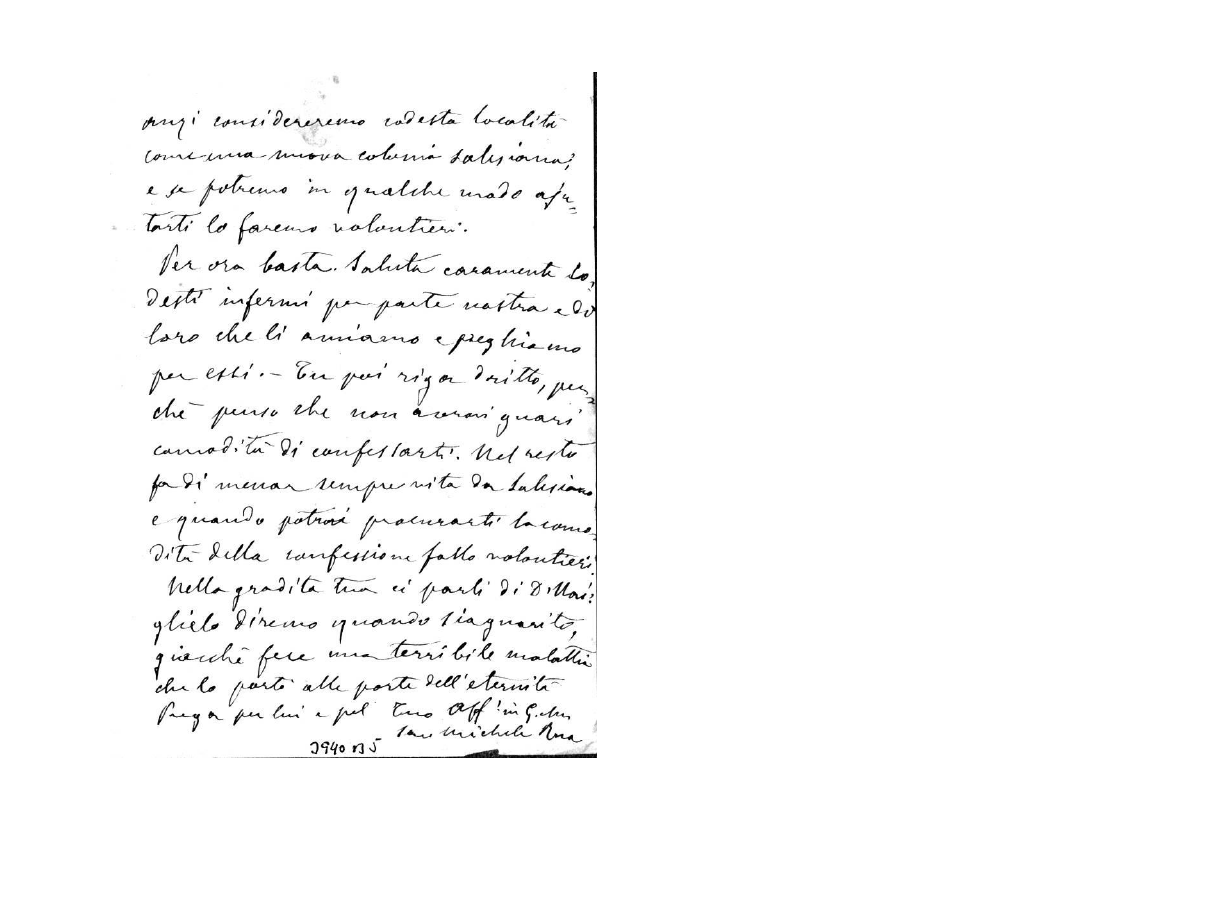 anzi considereremo codesta località
come una nuova colonia salesiana;
e se potremo in qualche modo aju-
tarti lo faremo volontieri.
Per ora basta. Saluta caramente co-
desti infermi per parte nostra e dì
loro che li amiamo e preghiamo
per essi. – Tu poi riga dritto, per-
chè penso che non avrai guari
comodità di confessarti. Nel resto
fa di menar sempre vita da Salesiano
e quando potrai procurarti la como-
dità della confessione fallo volontieri.
Nella gradita tua ci parli di D.
glielo diremo quando sia guarito,
giacchè fece una terribile malattia
che lo portò alle porte dell'eternità
Prega per lui e pel Tuo Aff. in G.
Sac Michele Rua
3940 B5